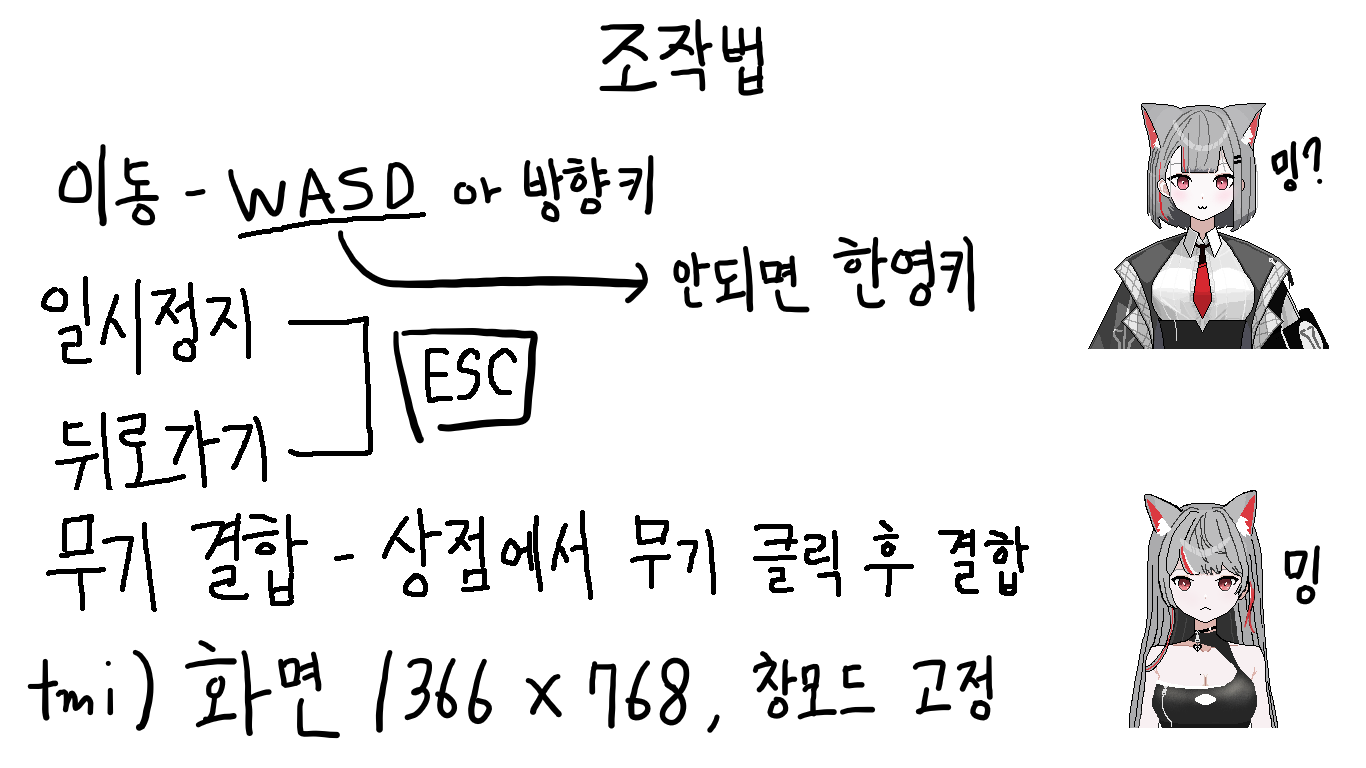 조작법
이동 - WASD or 방향키
밍?
안되면 한영키
일시정지
ESC
뒤로가기
무기 결합 - 상점에서 무기 클릭 후 결합
밍
tmi) 화면 1366 x 768, 창모드 고정